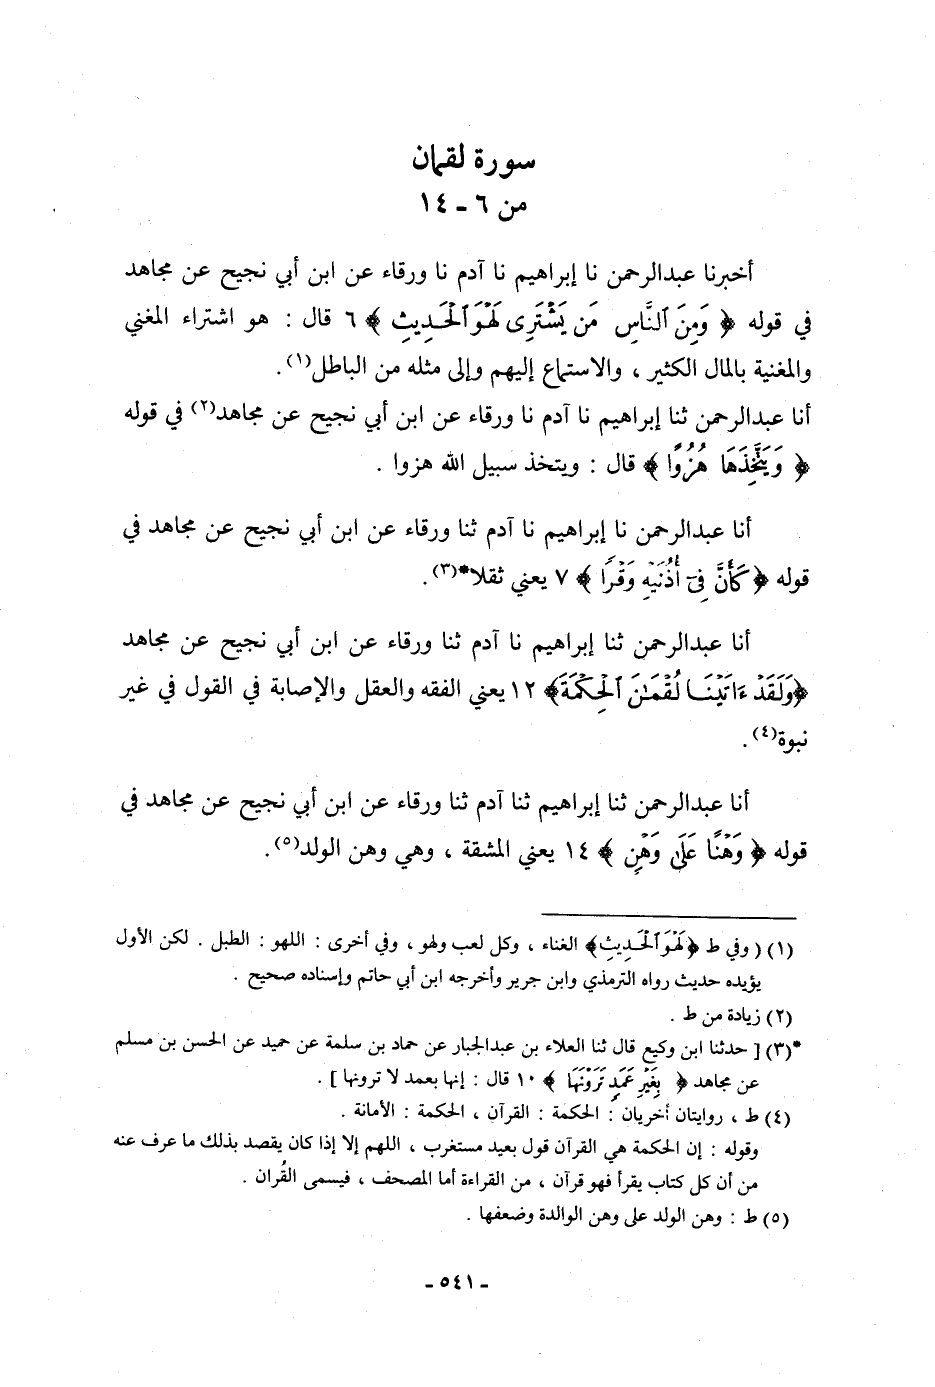 سورة لقمان
من ٦ - ١٤
أخبرنا عبدالرحمن نا إبراهيم نا آدم نا ورقاء عن ابن أبي نجيح عن مجاهد
في قوله ﴿ وَمِنَ ٱلنَّاسِ مَن يَشْتَرِى لَهْوَ ٱلْحَدِيثِ ﴾ ٦ قال : هو اشتراء المغني
والمغنية بالمال الكثير ، والاستماع إليهم وإلى مثله من الباطل(١) .
أنا عبدالرحمن ثنا إبراهيم نا آدم نا ورقاء عن ابن أبي نجيح عن مجاهد(٢) في قوله
﴿ وَيَتَّخِذَهَا هُزُوًا ﴾ قال : ويتخذ سبيل الله هزوا .
أنا عبدالرحمن نا إبراهيم نا آدم ثنا ورقاء عن ابن أبي نجيح عن مجاهد في
قوله ﴿ كَأَنَّ فِىٓ أُذُنَيْهِ وَقْرًا ﴾ ٧ يعني ثقلا*(٣) .
أنا عبدالرحمن ثنا إبراهيم نا آدم ثنا ورقاء عن ابن أبي نجيح عن مجاهد
﴿وَلَقَدْ ءَاتَيْنَا لُقْمَٰنَ ٱلْحِكْمَةَ﴾ ١٢ يعني الفقه والعقل والإصابة في القول في غير
نبوة(٤) .
أنا عبدالرحمن ثنا إبراهيم ثنا آدم ثنا ورقاء عن ابن أبي نجيح عن مجاهد في
قوله ﴿ وَهْنًا عَلَىٰ وَهْنٍ ﴾ ١٤ يعني المشقة ، وهي وهن الولد(٥) .
(١) ( وفي ط ﴿لَهْوَ ٱلْحَدِيثِ﴾ الغناء ، وكل لعب ولهو ، وفي أخرى : اللهو : الطبل . لكن الأول
يؤيده حديث رواه الترمذي وابن جرير وأخرجه ابن أبي حاتم وإسناده صحيح .
(٢) زيادة من ط .
*(٣) [ حدثنا ابن وكيع قال ثنا العلاء بن عبدالجبار عن حماد بن سلمة عن حميد عن الحسن بن مسلم
عن مجاهد ﴿ بِغَيْرِ عَمَدٍ تَرَوْنَهَا ﴾ ١٠ قال : إنها بعمد لا ترونها ] .
(٤) ط ، روايتان أخريان : الحكمة : القرآن ، الحكمة : الأمانة .
وقوله : إن الحكمة هي القرآن قول بعيد مستغرب ، اللهم إلا إذا كان يقصد بذلك ما عرف عنه
من أن كل كتاب يقرأ فهو قرآن ، من القراءة أما المصحف ، فيسمى القُران .
(٥) ط : وهن الولد على وهن الوالدة وضعفها .
- ٥٤١ -